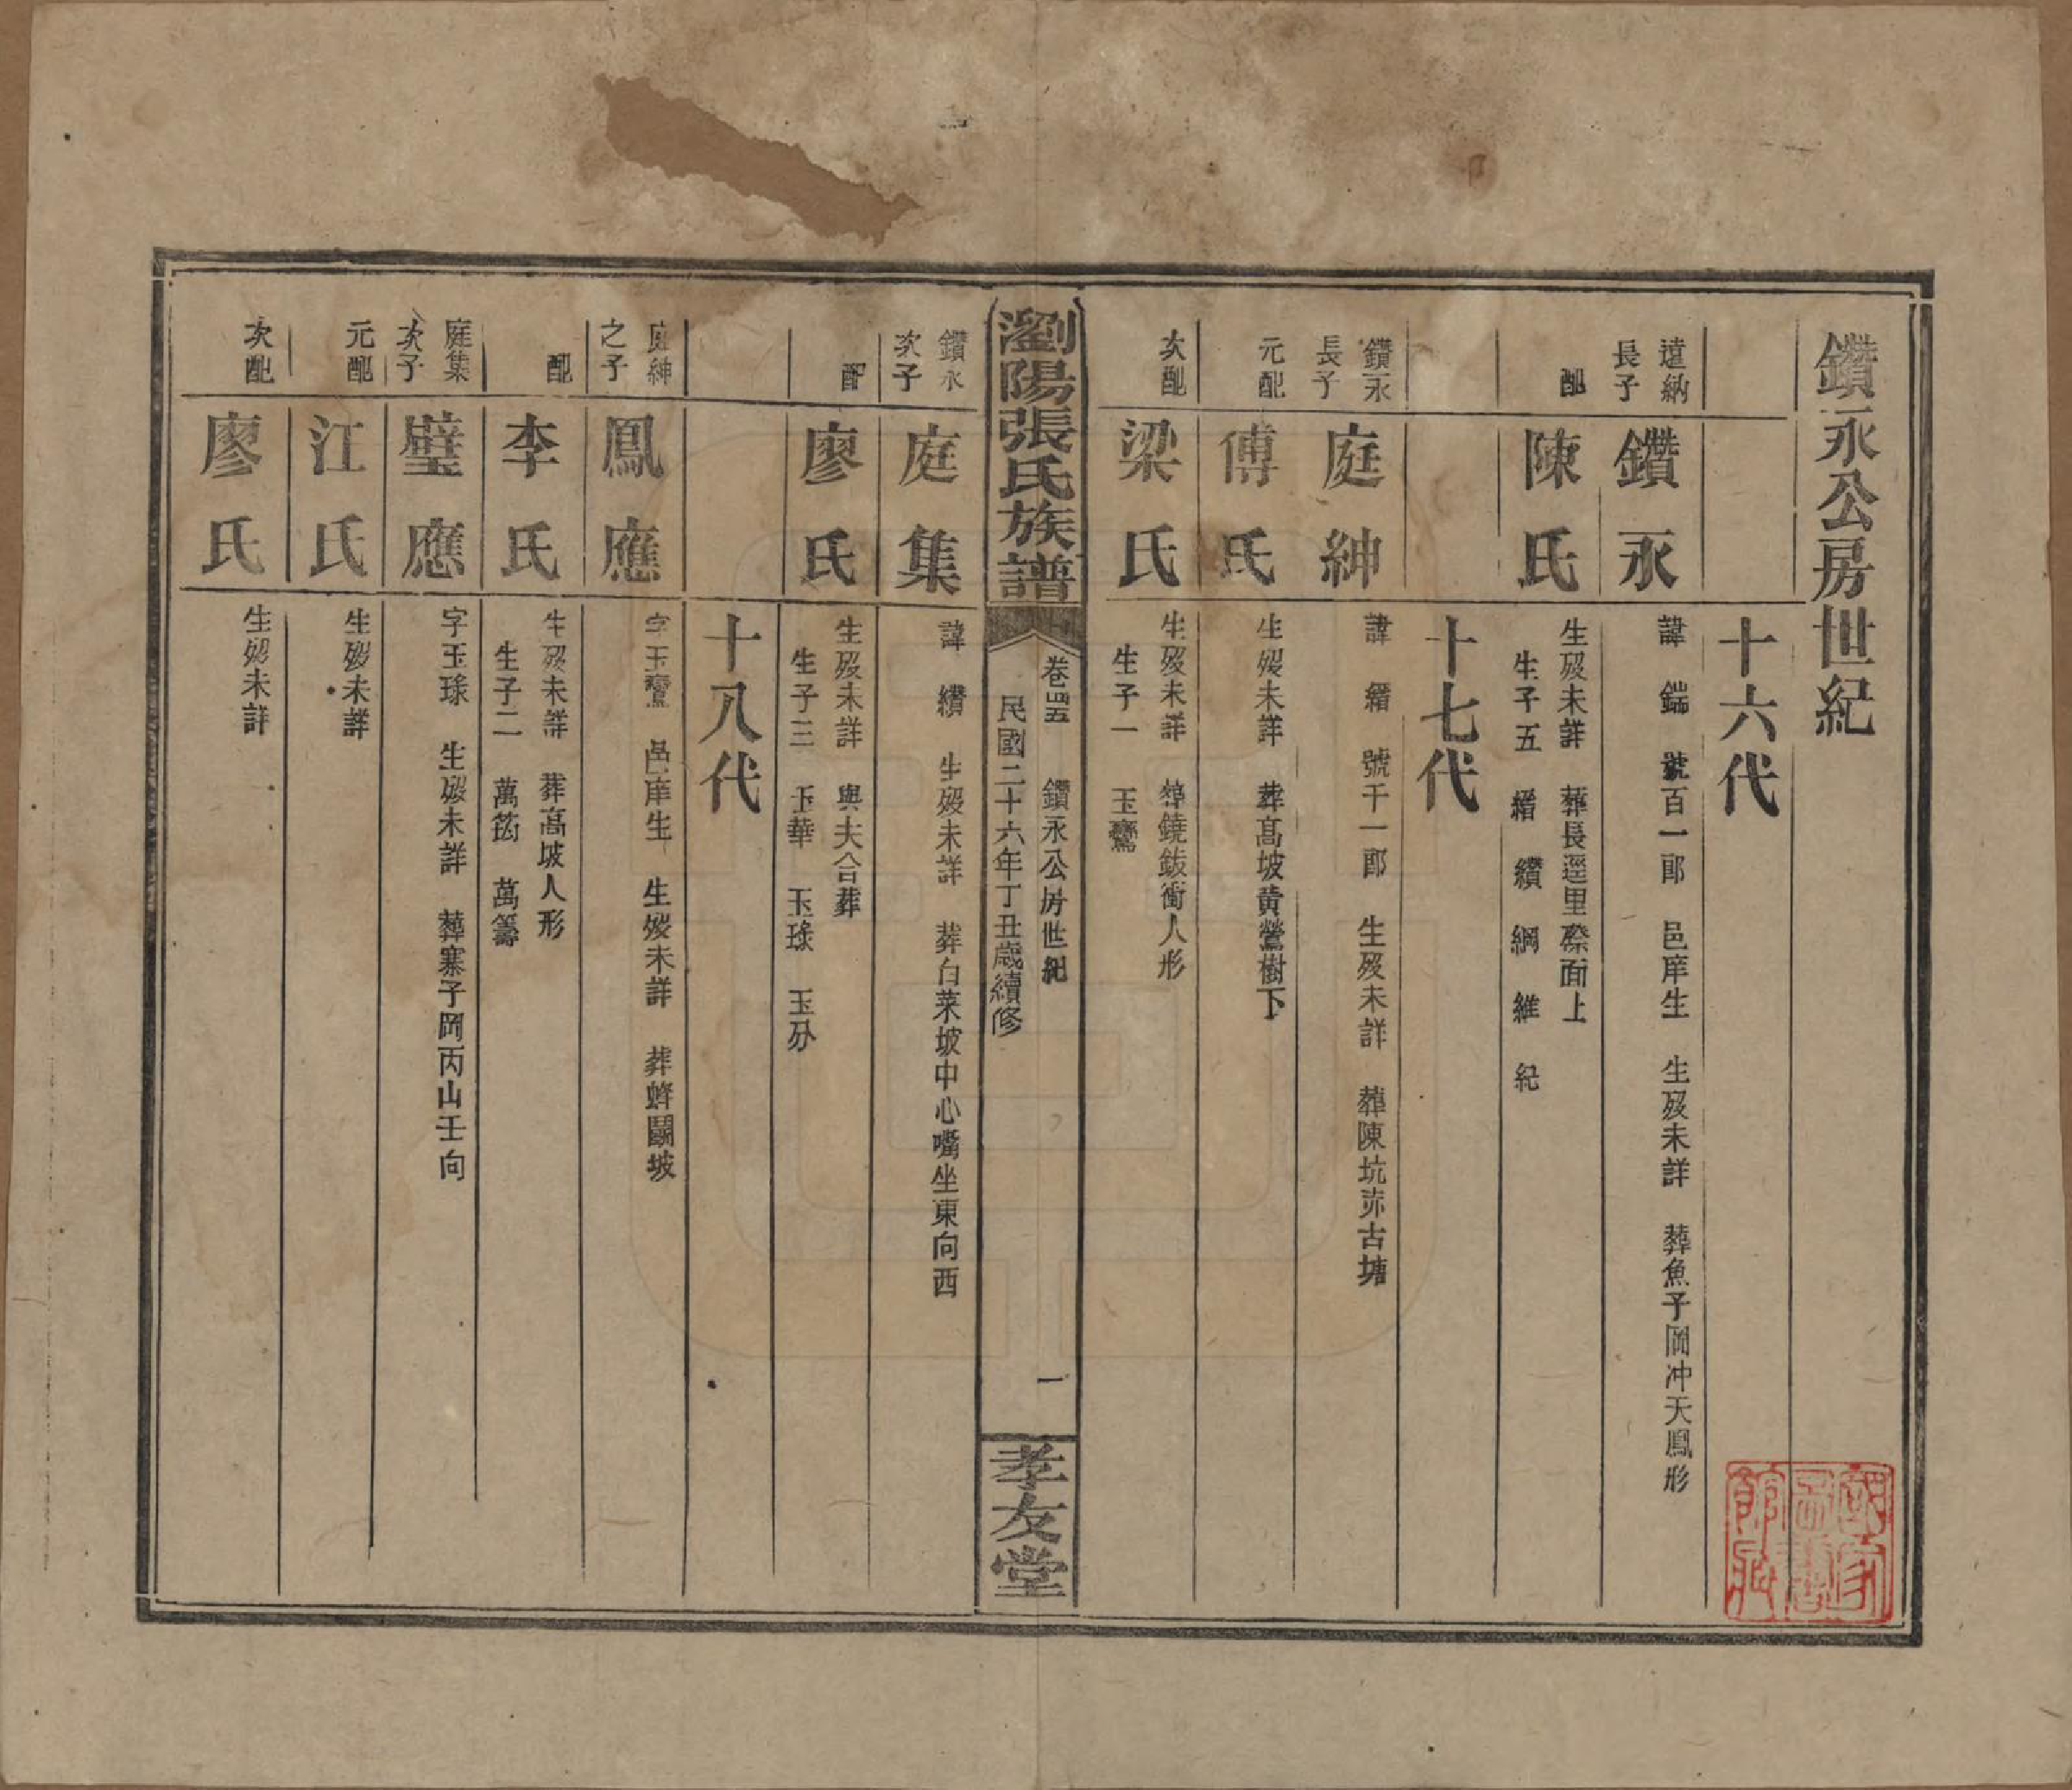 鑽永公房世紀
十六代
遠納
長子
鑽永
諱 鍴 號百一郎 邑庠生 生歿未詳 葬魚子岡冲天鳳形
配
陳氏
生歿未詳 葬長逕里磜面上
生子五 縉 纘 綱 維 紀
十七代
鑽永
長子
庭紳
諱 縉 號千一郎 生歿未詳 葬陳坑赤古塘
元配
傅氏
生歿未詳 葬高坡黄鶯樹下
次配
梁氏
生歿未詳 葬鐃鈸衝人形
生子一 玉鸞
瀏陽張氏族譜
卷四五 鑽永公房世紀 一
民國二十六年丁丑歲續修
孝友堂
鑽永
次子
庭集
諱 纘 生歿未詳 葬白菜坡中心嘴坐東向西
配
廖氏
生歿未詳 與夫合葬
生子三 玉華 玉球 玉分
十八代
庭紳
之子
鳳應
字玉鸞 邑庠生 生歿未詳 葬蜂鬭坡
配
李氏
生歿未詳 葬高坡人形
生子二 萬篛 萬籌
庭集
次子
璧應
字玉球 生歿未詳 葬寨子岡丙山壬向
元配
江氏
生歿未詳
次配
廖氏
生歿未詳